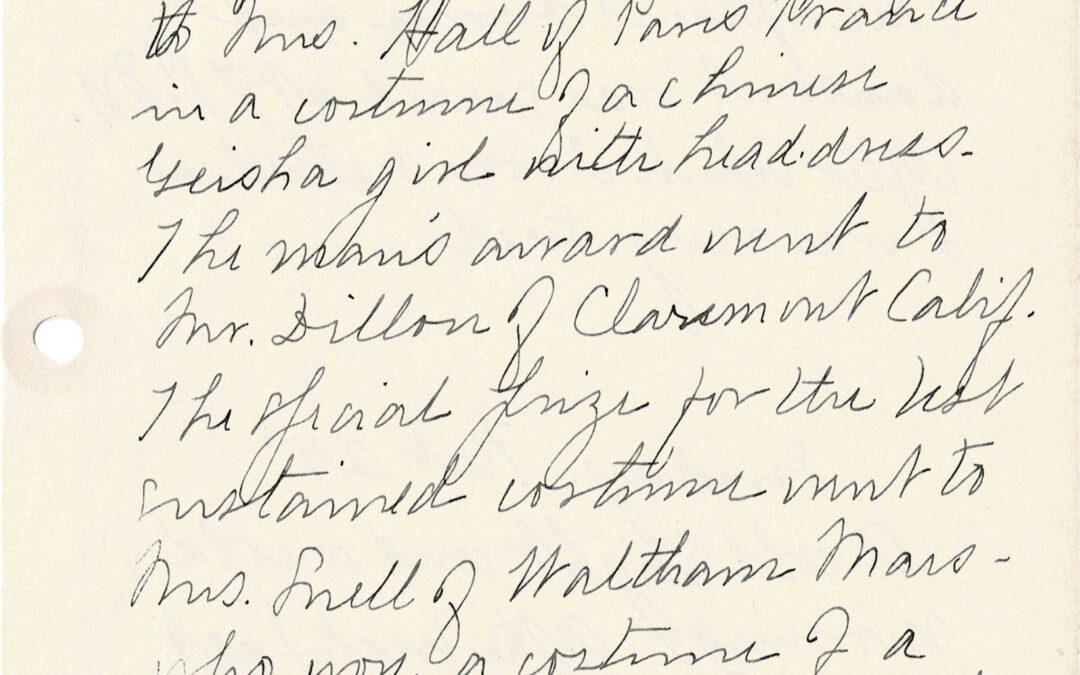 to Mrs. Hall of Paris France
in a costume of a Chinese
Geisha girl with head-dress.
The man's award went to
Mr. Dillon of Claremont Calif.
The special prize for the best
sustained costume went to
Mrs. Snell of Waltham Mass -
who wore a costume of a